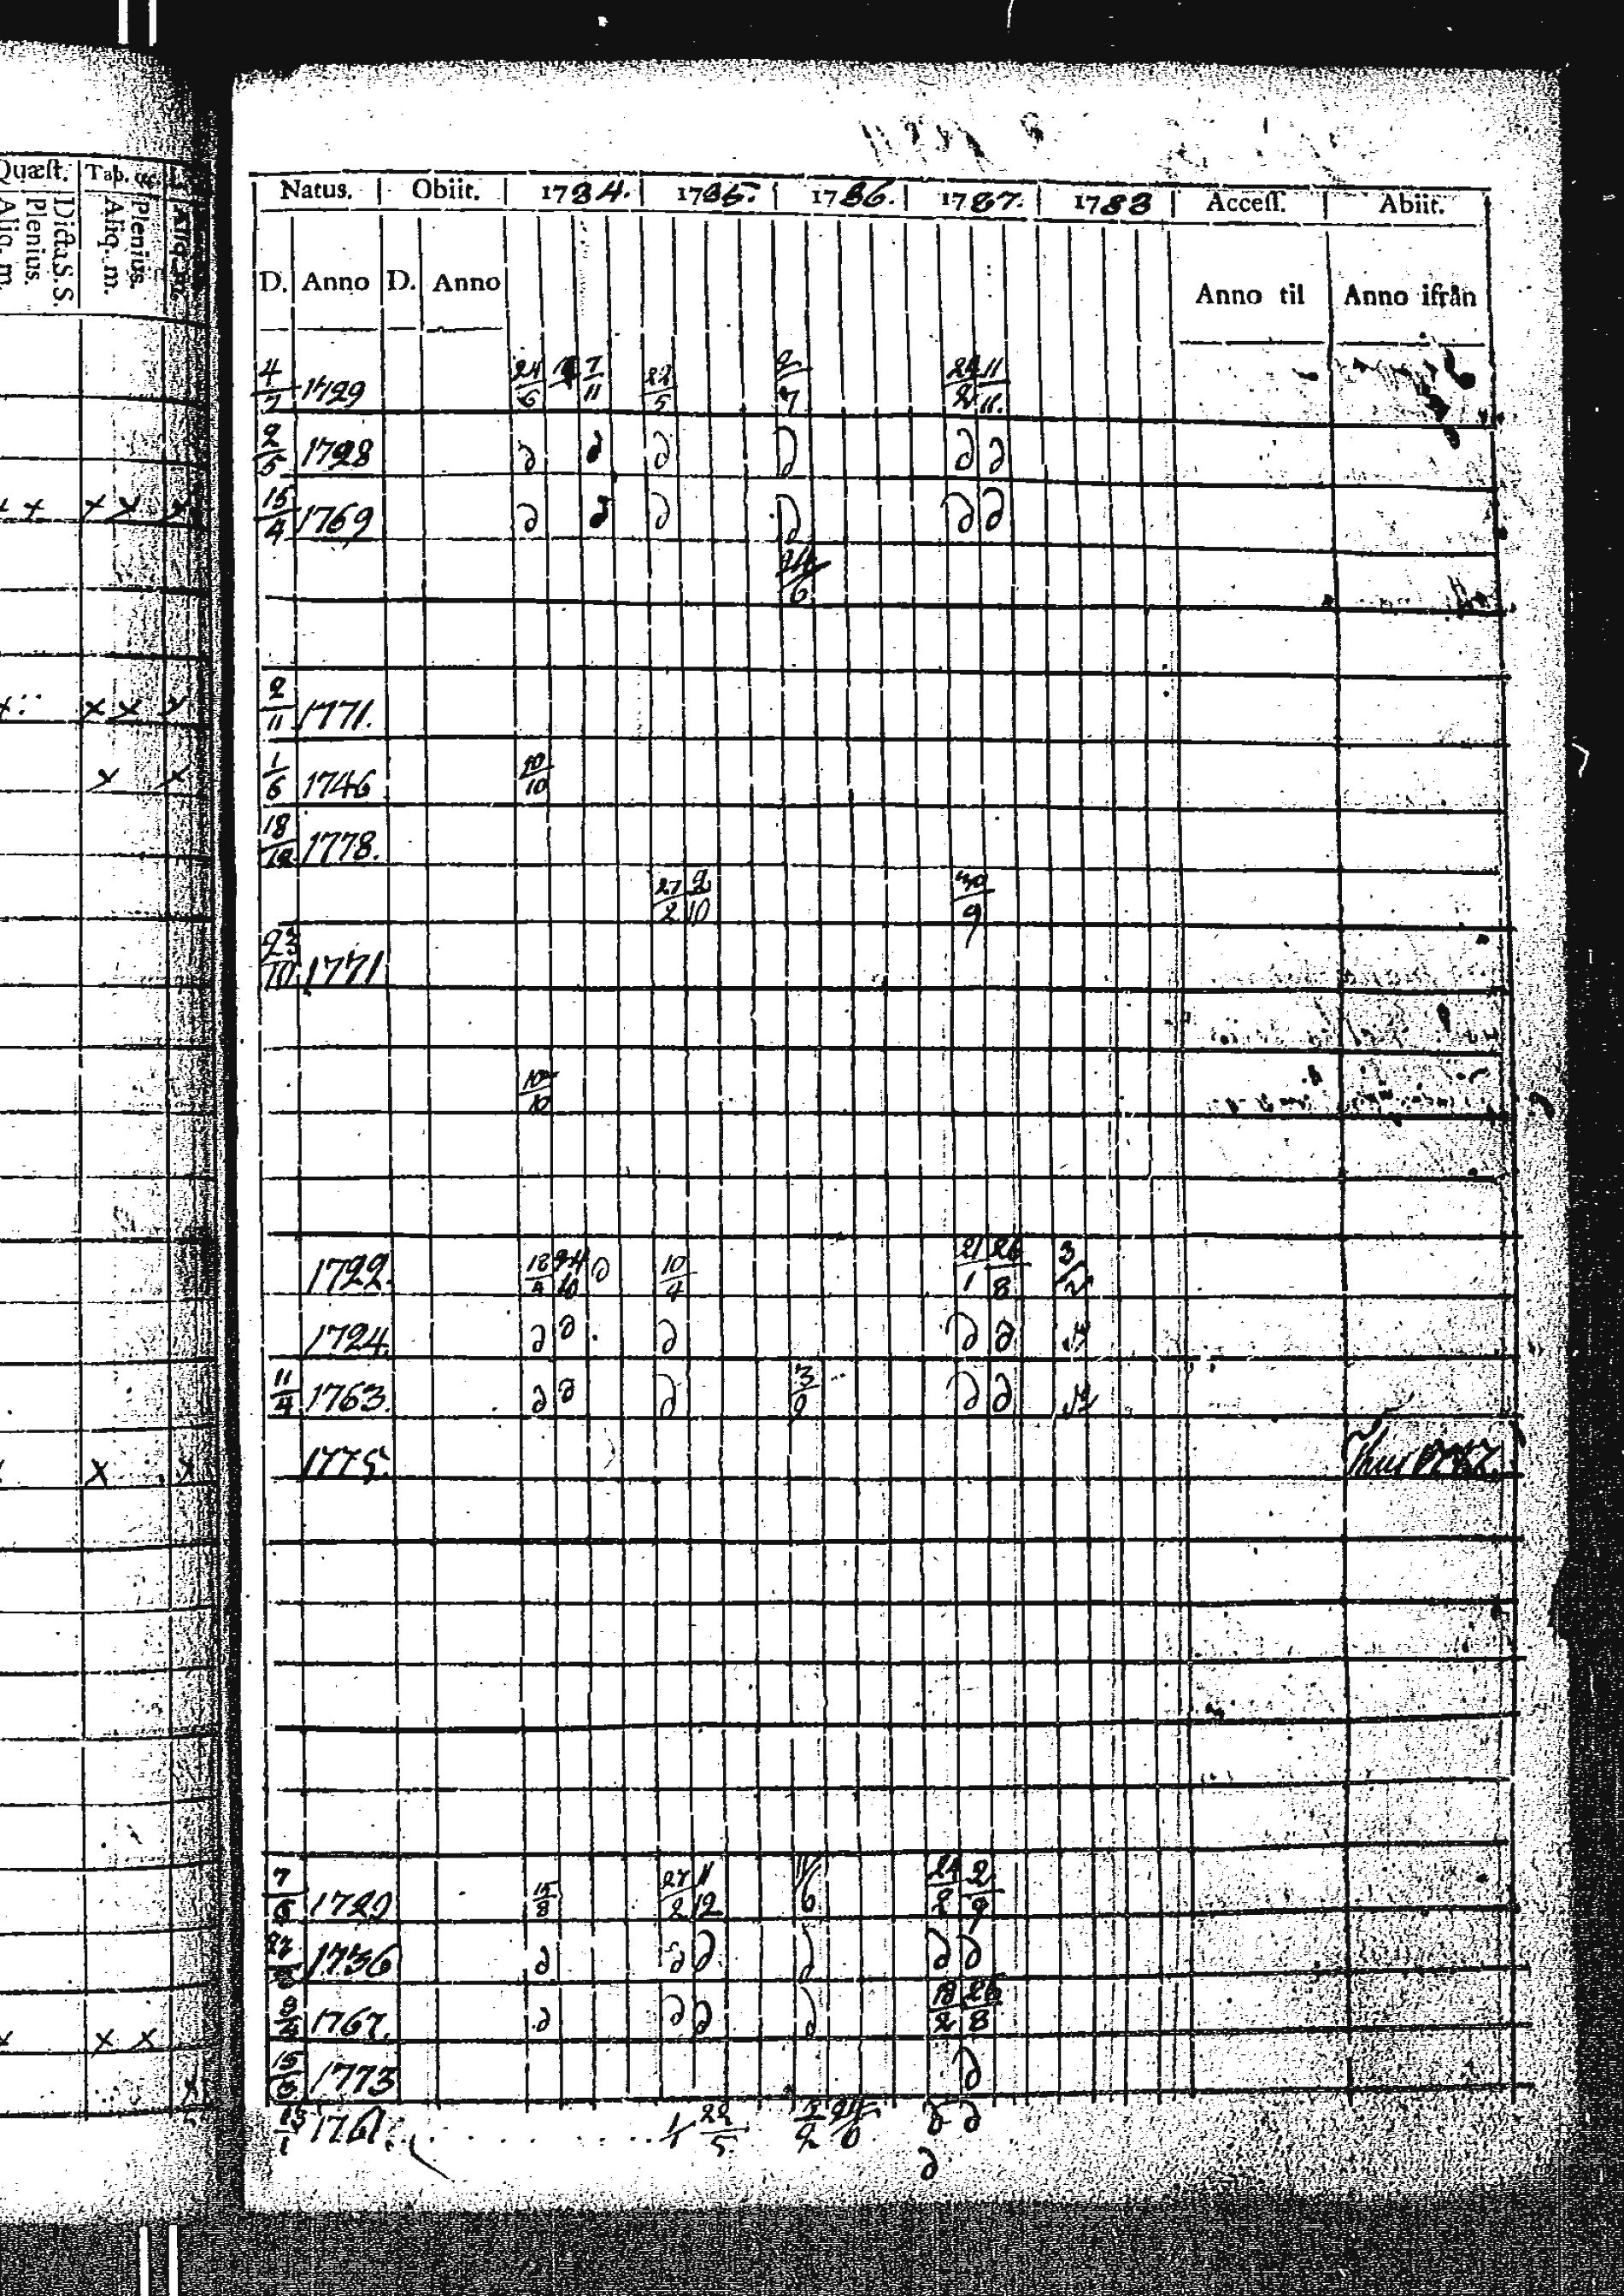 Quæst. Tab. œc.
Dicta S. S.
Plenius.
Aliq. m.
Plenius.
Aliq. m.
Natus. Obiit. 1784. 1785. 1786. 1787. 1788 Access. Abiit.
D. Anno D. Anno Anno til Anno ifrån
4/7 1729 24/6 7/11 22/5 2/7 24/2 11/11.
2/5 1728 д д д д д д
15/4 1769 д д д д д д
24/6
2/11 1771.
1/6 1746 10/10
18/12 1778.
27/2 2/10 30/9
23/10 1771
10/10
1722. 18/4 24/10 д 10/4 21/1 26/8 3/2
1724. д д д д д
11/4 1763. д д д 3/2 д д
1775.
7/9 1729 15/8 27/2 11/12 11/6 24/2 2/9
1736 д д д д д д
8/4 1767. д д д д 18/2 26/8
15/6 1773 д
13/1 1761. 1/1 22/5. 3/2 24/6 д д
д